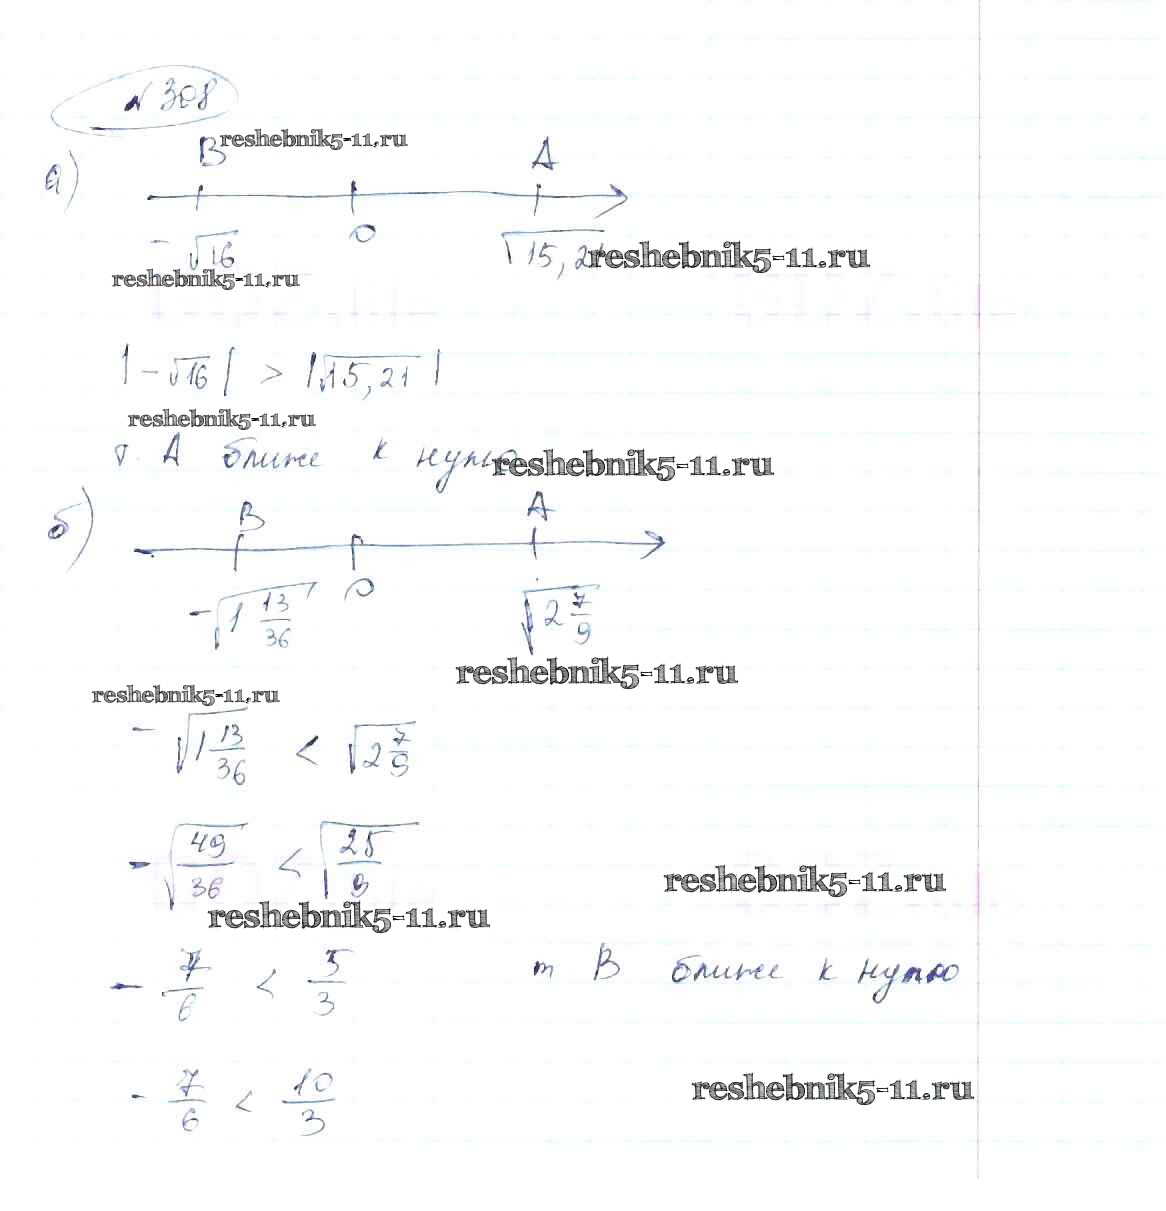 № 308
а) B reshebnik5-11.ru A
-√16 0 √15,21 reshebnik5-11.ru
reshebnik5-11.ru
|-√16| > |√15,21|
reshebnik5-11.ru
т. A ближе к нулю reshebnik5-11.ru
б) B A
-√1 13/36 0 √2 7/9
reshebnik5-11.ru
reshebnik5-11.ru
-√1 13/36 < √2 7/9
-√49/36 < √25/9 reshebnik5-11.ru
reshebnik5-11.ru
-7/6 < 5/3 т B ближе к нулю
-7/6 < 10/3 reshebnik5-11.ru